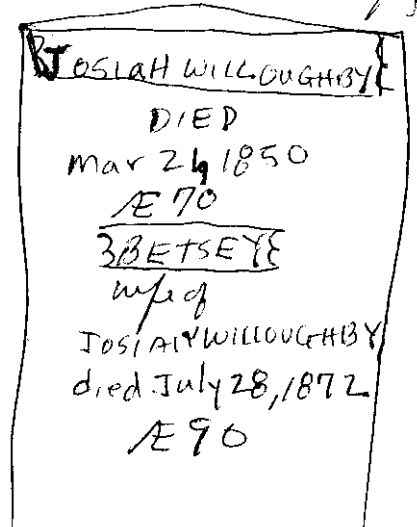 JOSIAH WILLOUGHBY
DIED
Mar 24, 1850
Æ 70
BETSEY
wife of
JOSIAH WILLOUGHBY
died July 28, 1872
Æ 90